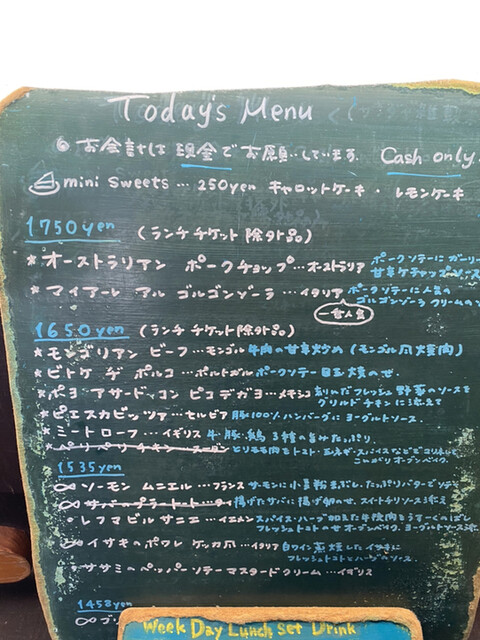 Today's Menu
お会計は現金でお願いしています。 Cash only.
mini sweets … 250yen キャロットケーキ・レモンケーキ
1750yen (ランチチケット除外品)
★オーストラリアン ポークチョップ…オーストラリア ポークソテーにガーリー
甘辛ケチャップソース
★マイアーレ アル ゴルゴンゾーラ…イタリア ポークソテーに人気の
ゴルゴンゾーラクリームの
一番人気
1650yen (ランチチケット除外品)
★モンゴリアン ビーフ…モンゴル 牛肉の甘辛炒め(モンゴル風焼肉)
★ビトケ デ ポルコ…ポルトガル ポークソテー目玉焼のせ.
★ポヨ アサード コン ピコデガヨ…メキシコ フレッシュ野菜のソースを
グリルドチキンに添えて
★ピエスカビッツァ…セルビア 豚100%ハンバーグにヨーグルトソース.
★ミートローフ…イギリス 牛、豚、鶏 3種の旨みたっぷり.
★ペリペリチキン
1535yen
∞ソーモン ムニエル…フランス サーモンに小麦粉まぶし、たっぷりバターでソテー
∞サバのプラートート…タイ 揚げたサバに揚げ卵のせ、スイートチリソース添え
レフマ ビル サニエ…イエメン スパイス・ハーブ
フレッシュトマトのせオーブンベイク、ヨーグルトソース
イサキのポワレ ケッカ風…イタリア 白ワイン蒸焼したイサキに
フレッシュトマトとハーブのソース.
ササミのペッパーソテーマスタードクリーム…イギリス
1458yen
∞ブ
Week Day Lunch Set Drink